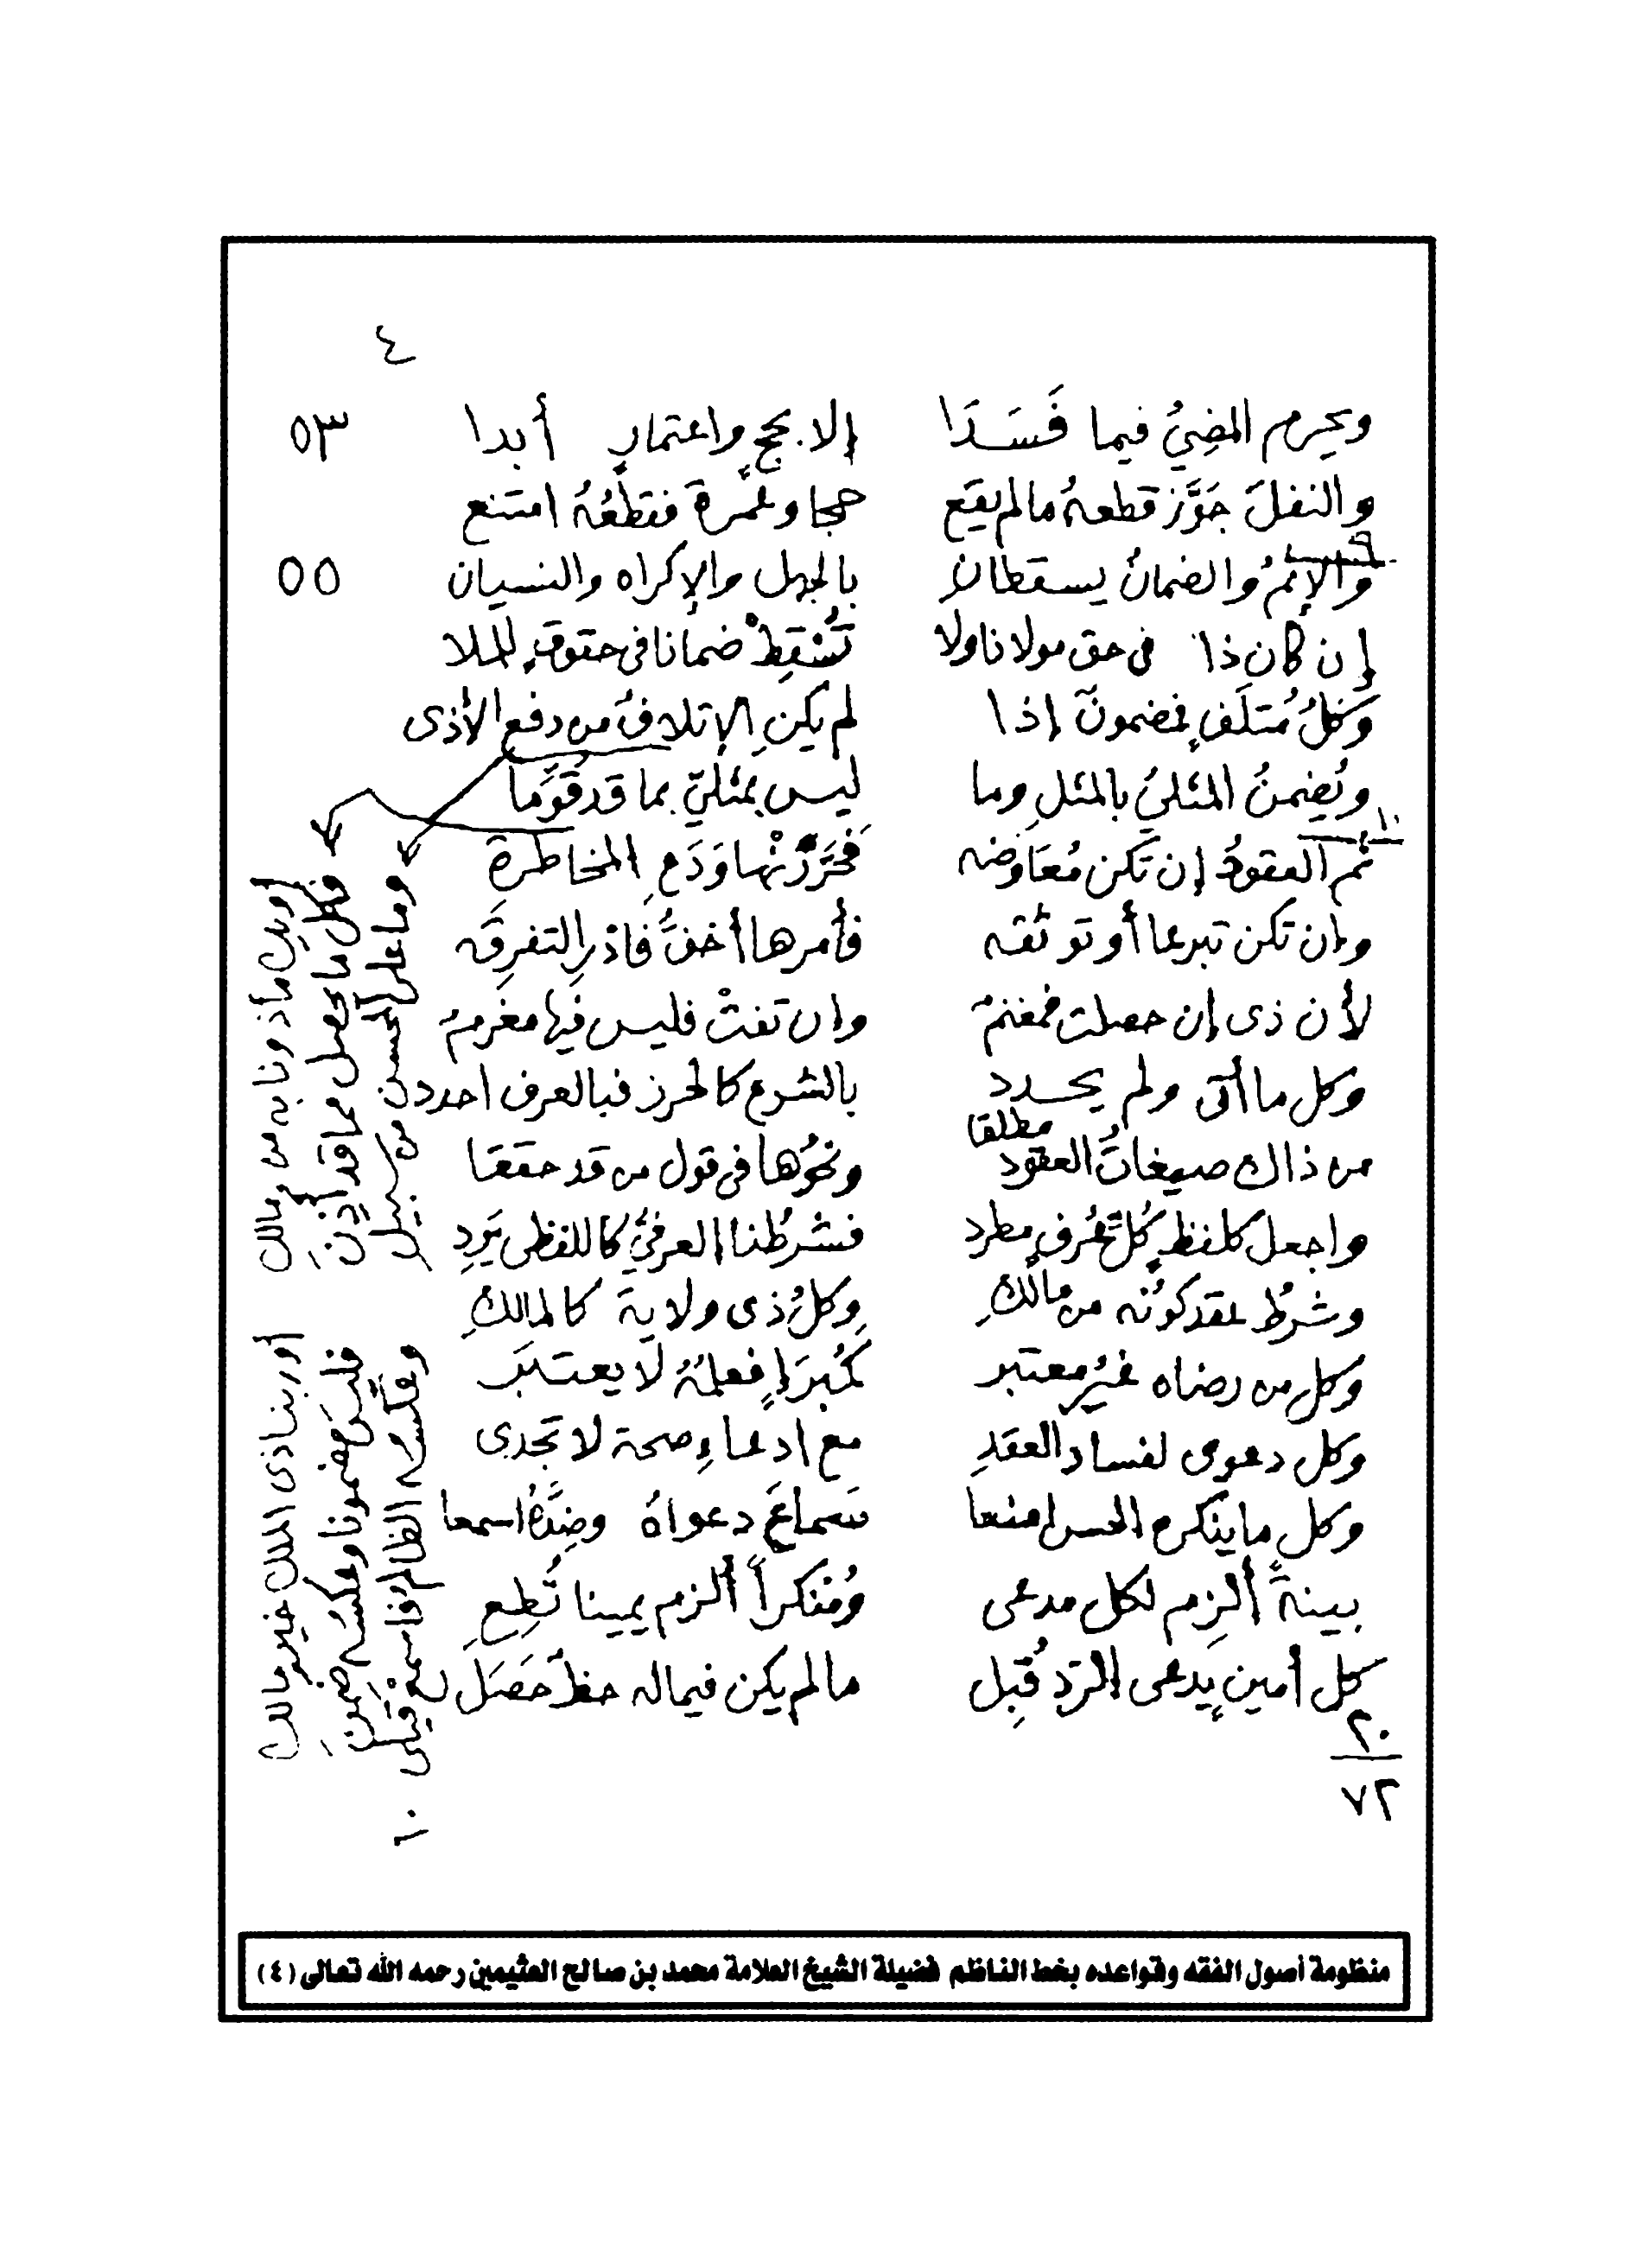 ٤
ويحرم المضيُّ فيما فَسَدَا إلا بحجٍ واعتمارٍ أبدا ٥٣
والنفلَ جَوِّز قطعهُ مالم يقَع حجا وعُمرةً فقطعُهُ امتنع
والإثمُ والضمانُ يسقطانِ بالجهل والإكراه والنسيان ٥٥
إن كان ذا في حق مولانا ولا تُسْقِطْ ضمانا في حقوقٍ للملا
وكلُّ مُتلَفٍ فمضمونٌ إذا لم يكنِ الإتلافُ من دفع الأذى
ويُضمنُ المثليُّ بالمثلِ وما ليس بمثليٍّ بما قد قُوِّما
١٠
ثم العقودُ إن تكن مُعَاوضه فَحَرِّرَنْها وَدَعِ المخاطرةِ
وإن تكن تبرعا أو توثقه فأمرها أخفُّ فادْرِ التفرِقَه
لأن ذي إن حصلت فمغنمُ وإن تفتْ فليس فيها مغرمُ
وكل ما أتى ولم يحدد بالشرع كالحرز فبالعرف احدد
من ذاك صيغاتُ العقود مطلقا ونحوُها في قول من قد حققا
واجعل كلفظٍ كلَّ عُرفٍ مطرد فشرطُنا العرفيُّ كاللفظي يَرِدِ
وشرطُ عقد كونُه من مالكِ وكلُّ ذي ولاية كالمالكِ
وكل من رضاه غيرُ معتبر كمُبرَإٍ فعلمُهُ لا يعتبَر
وكل دعوى لفساد العقدِ مع ادعاءِ صحة لا تُجدي
وكل ما ينكره الحس امنعا سَماعَ دعواهُ وضِدَّهُ اسمعا
بينةً ألزِم لكل مدعي ومُنكراً ألزم يمينا تُطِعِ
كل أمينٍ يدعي الردَّ قُبِل مالم يكن فيما له حظٌ حَصَل
٢٠
٧٢
وما على المحسن من سبيل وعكسه الظالمُ فاسمعْ قيلي
فكل ما يحصل مما قد أُذِنَ فليسَ مضمونا وعكسُه ضُمِنَ
أو يكُ مأذونا به من مالك أو ربنا ذي الملك خيرِ مالكِ
١٠
منظومة أصول الفقه وقواعده بخط الناظم فضيلة الشيخ العلامة محمد بن صالح العثيمين رحمه الله تعالى (٤)